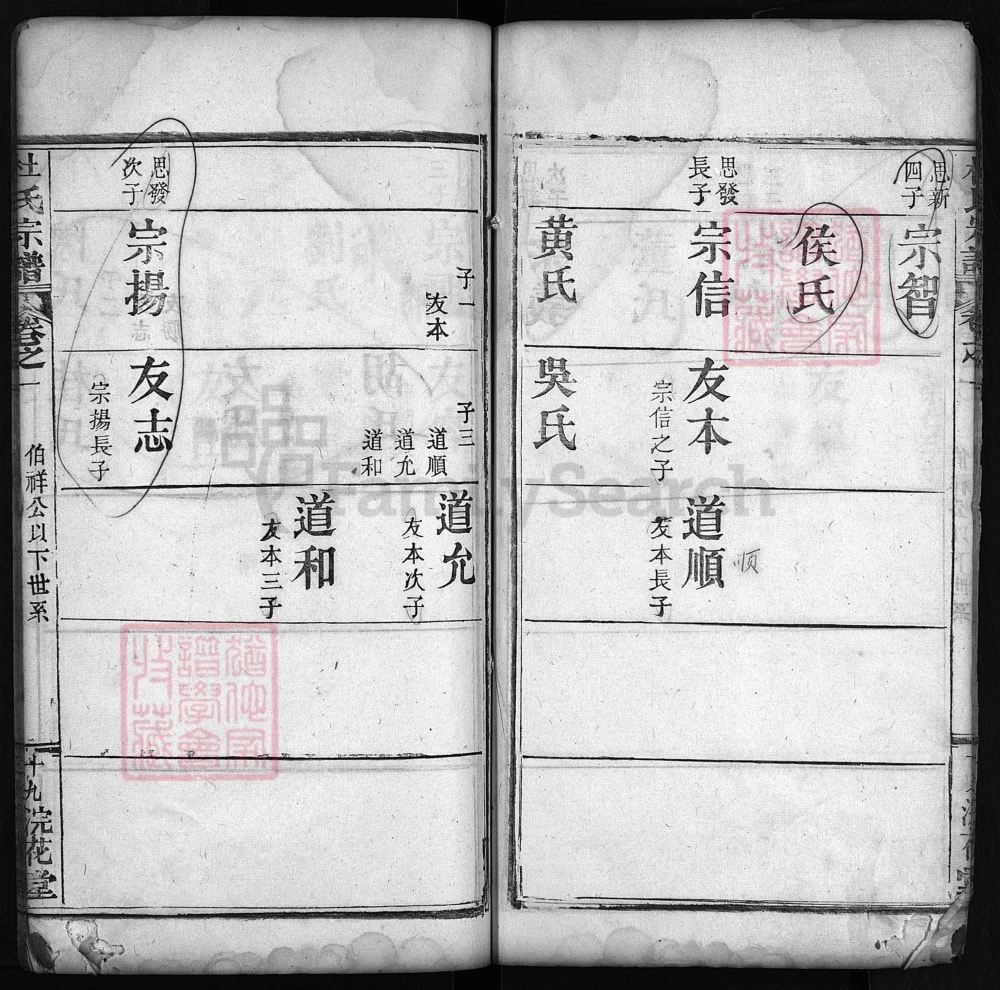 思新
四子
宗智
侯氏
思發
長子
宗信
友本
宗信之子
道順
友本長子
順
黃氏
吳氏
子一
友本
子三
道順
道允
道和
道允
友本次子
道和
友本三子
思發
次子
宗揚
友志
宗揚長子
杜氏宗譜
卷之一
伯祥公以下世系
十九
浣花堂
FamilySearch